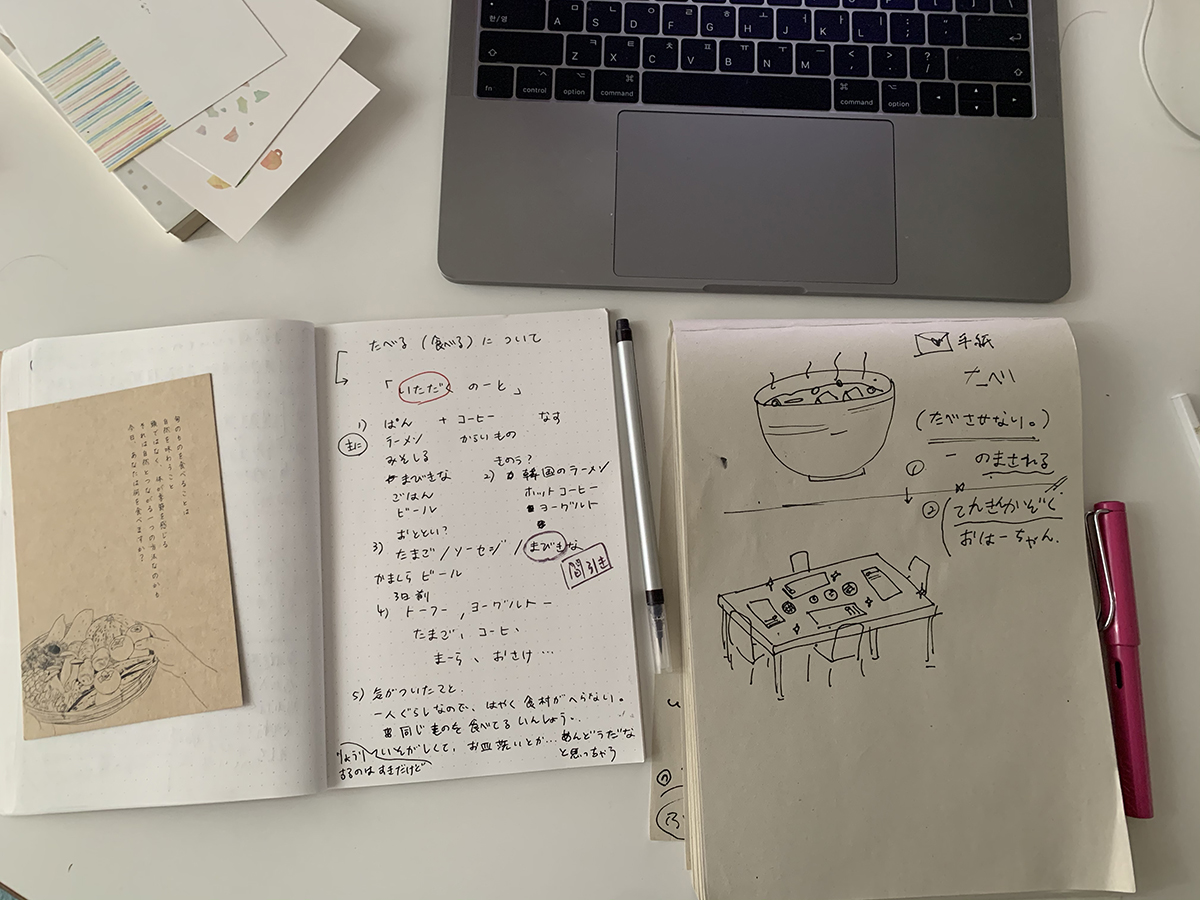 한/영 A S D F G H J K L ; "
Z X C V B N M < > ? /
fn control option command command option
旬のものを食べることは
自然を味わうこと
頭ではなく、体が季節を感じる
それは自然とつながる一つの方法なのかも
今日、あなたは何を食べますか?
たべる (食べる) に ついて
「いただく のーと」
1) ぱん + コーヒー なす
主に ラーメン からい もの
みそしる ものう?
まびきな 2) 韓国のラーメン
ごはん ホットコーヒー
ビール ヨーグルト
おととい?
3) たまご / ソーセジ / まびきな
間引き
かましら ビール
3日前
4) トーフー , ヨーグルトー
たまご、コーヒ、
まーら 、おさけ …
5) 気がついたこと.
一人ぐらしなので、はやく 食材が へらない。
同じ ものを 食べてる いんしょう.
いそがしくて, お皿洗いとか… めんどうだな
と思っちゃう
りょうり
するのは すきだけど
手紙
たべ
(たべさせない。)
① ー のまされる
②
おばーちゃん.